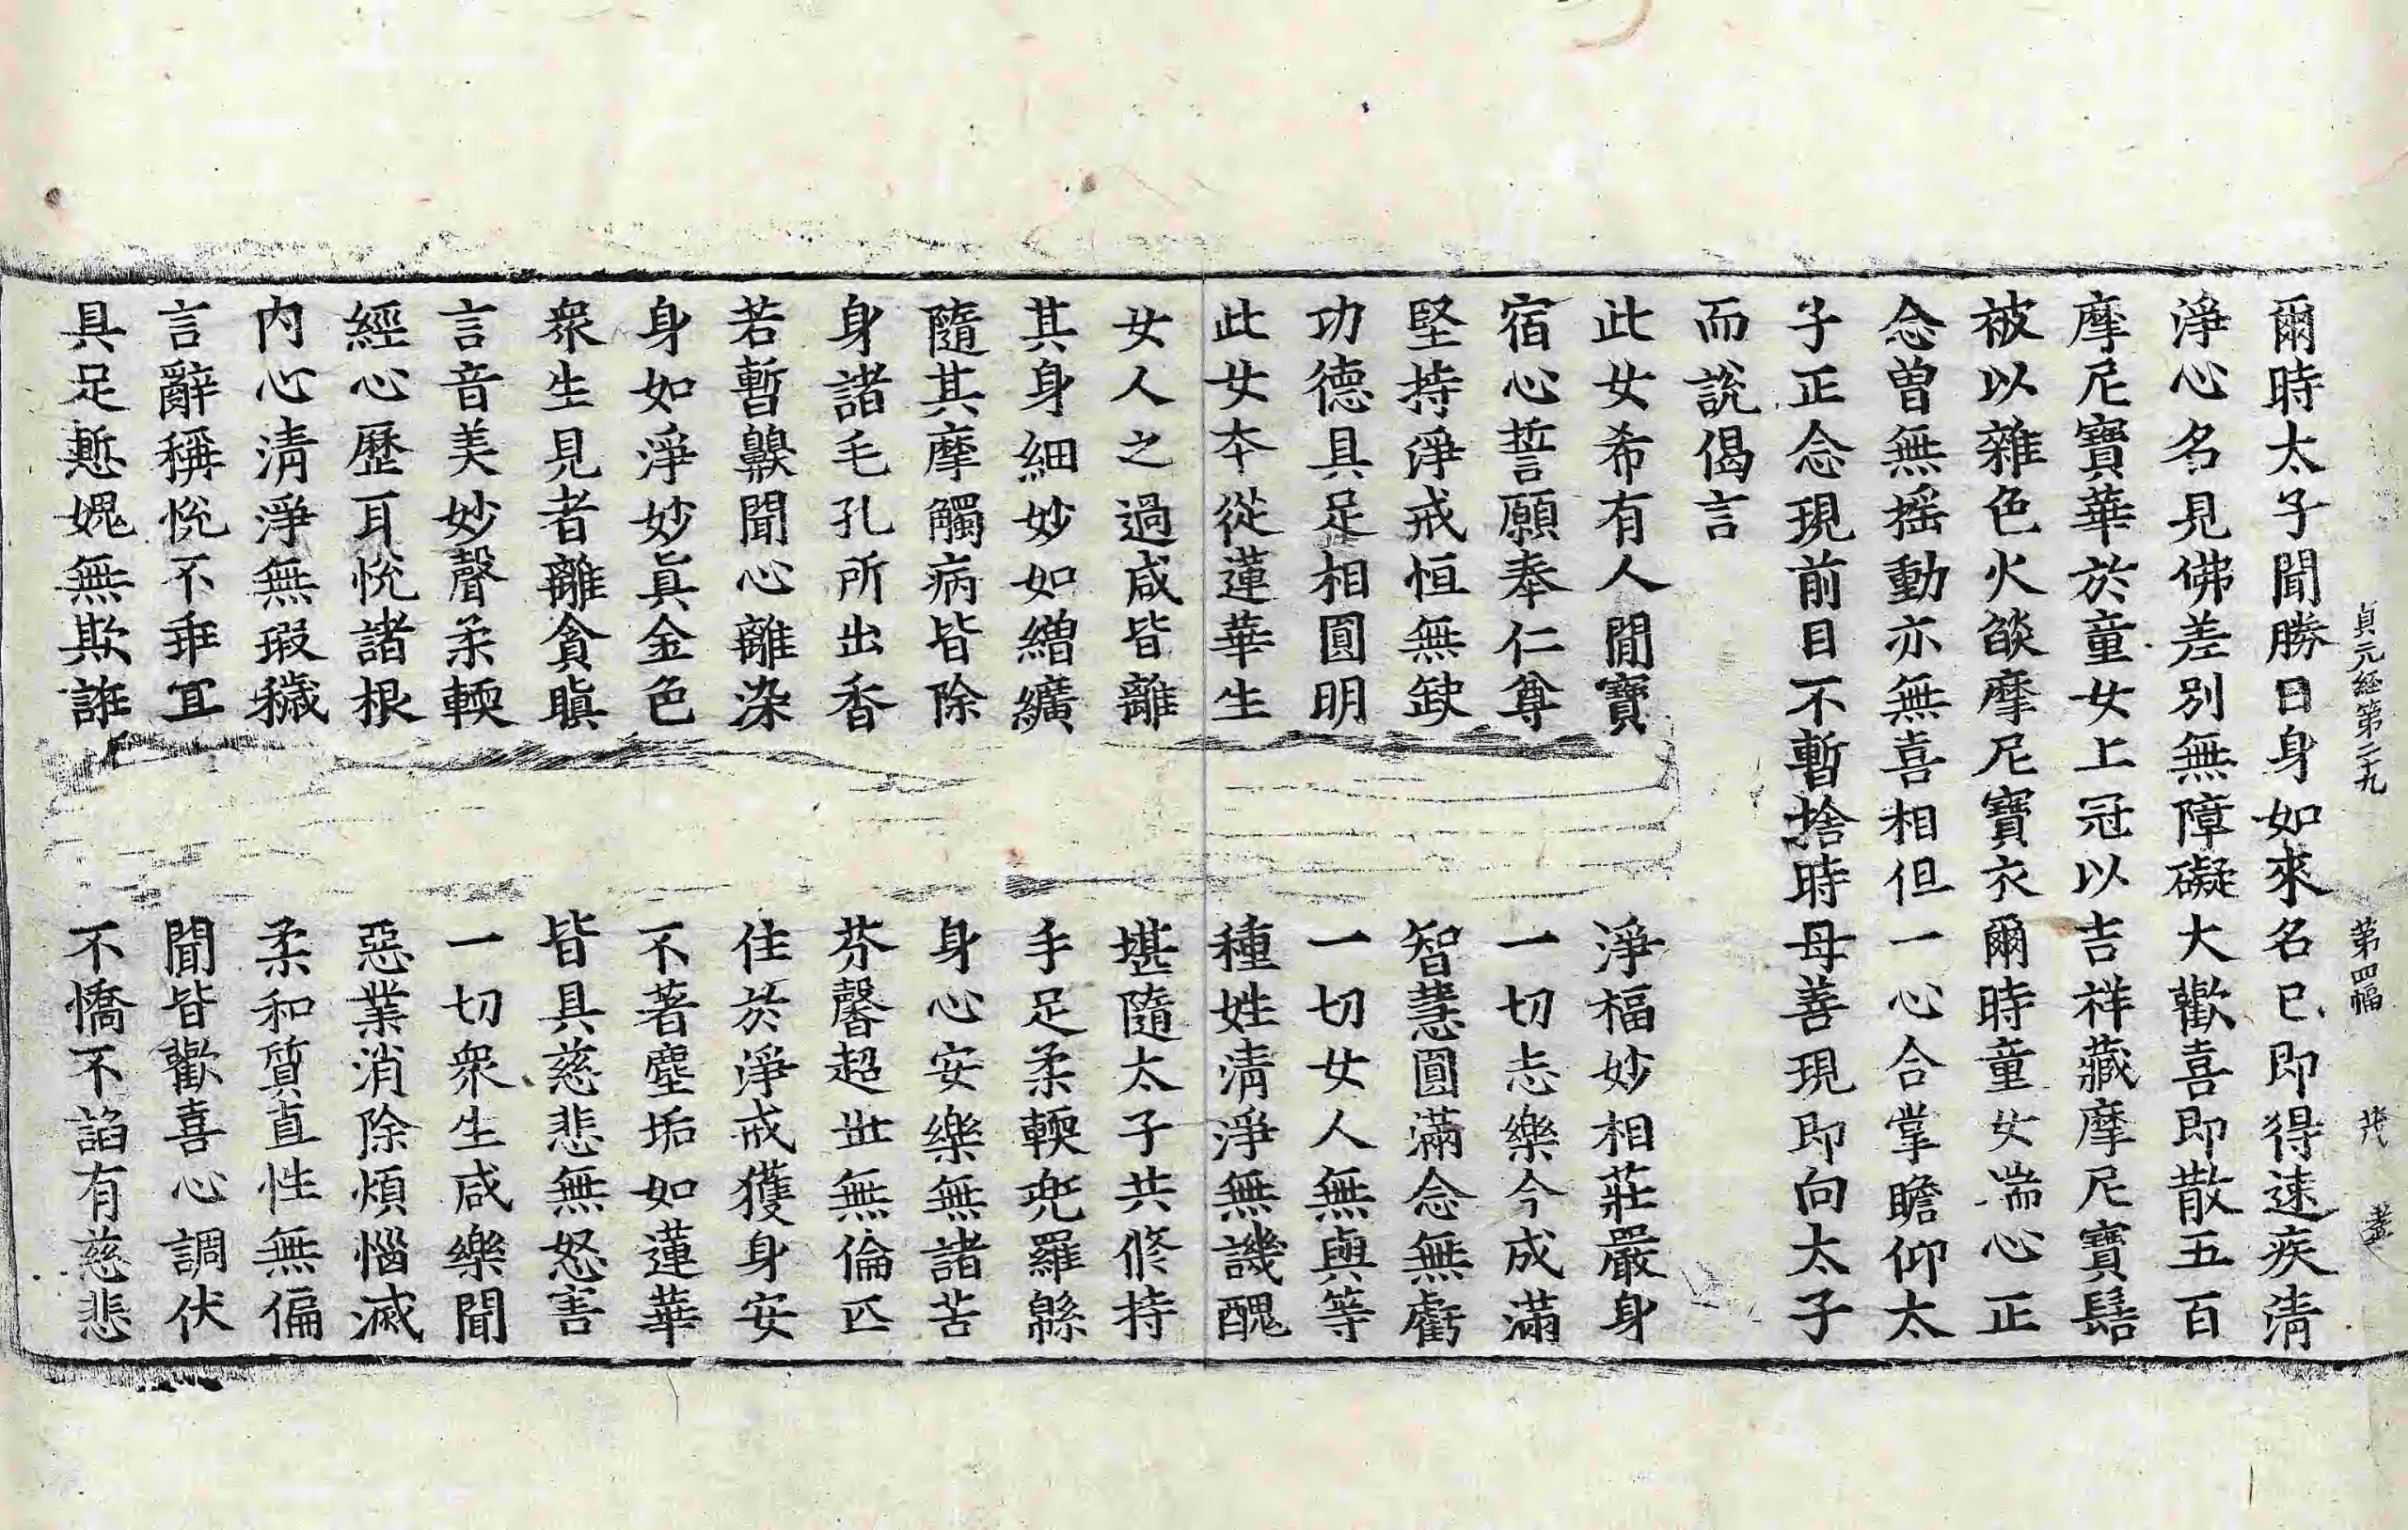 貞元経第二十九 第四幅 茂
爾時太子聞勝日身如來名已即得速疾清
淨心名見佛差別無障礙大歡喜即散五百
摩尼寶華於童女上冠以吉祥藏摩尼寶髻
被以雜色火燄摩尼寶衣爾時童女端心正
念曾無揺動亦無喜相但一心合掌瞻仰太
子正念現前目不暫捨時母善現即向太子
而說偈言
此女希有人閒寶 淨福妙相莊嚴身
宿心誓願奉仁尊 一切志樂今成滿
堅持淨戒恒無缺 智慧圓滿念無虧
功德具足相圓明 一切女人無與等
此女本從蓮華生 種姓清淨無譏醜
女人之過咸皆離 堪隨太子共修持
其身細妙如繒纊 手足柔輭兜羅緜
隨其摩觸病皆除 身心安樂無諸苦
身諸毛孔所出香 芬馨超世無倫匹
若暫齅聞心離染 住於淨戒獲身安
身如淨妙眞金色 不著塵垢如蓮華
衆生見者離貪瞋 皆具慈悲無怒害
言音美妙聲柔輭 一切衆生咸樂聞
經心歷耳悅諸根 惡業消除煩惱滅
内心清淨無瑕穢 柔和質直性無偏
言辭稱悅不乖冝 聞皆歡喜心調伏
具足慙媿無欺誑 不憍不諂有慈悲